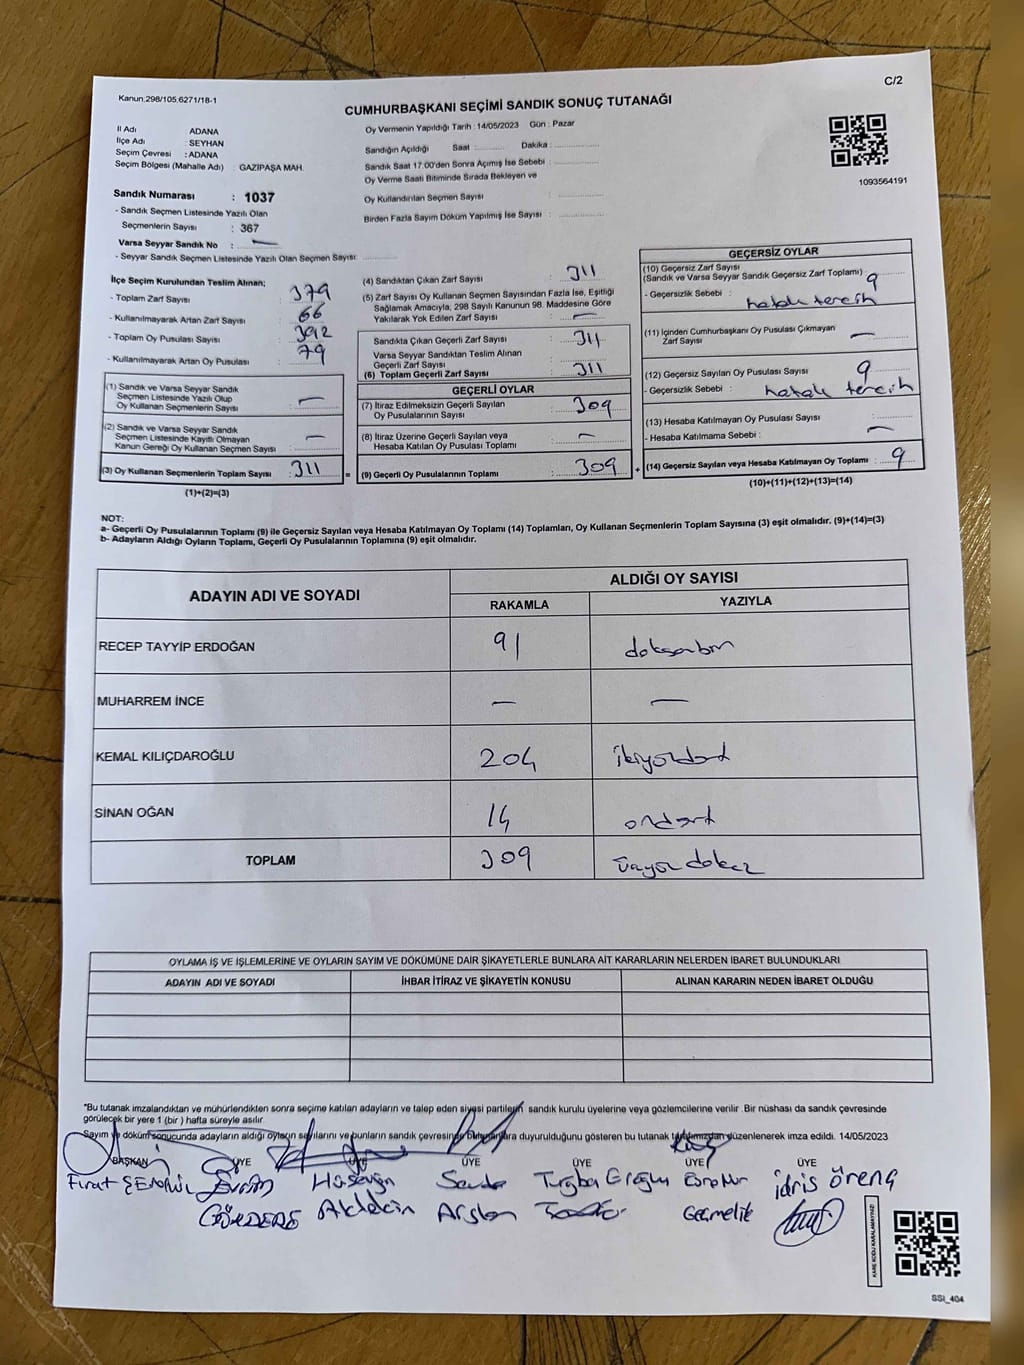 Kanun,298/105,6271/18-1
C/2
CUMHURBAŞKANI SEÇİMİ SANDIK SONUÇ TUTANAĞI
İl Adı ADANA
İlçe Adı : SEYHAN
Seçim Çevresi : ADANA
Seçim Bölgesi (Mahalle Adı) : GAZİPAŞA MAH.
Sandık Numarası : 1037
- Sandık Seçmen Listesinde Yazılı Olan
Seçmenlerin Sayısı : 367
Varsa Seyyar Sandık No : —
- Seyyar Sandık Seçmen Listesinde Yazılı Olan Seçmen Sayısı:
Oy Vermenin Yapıldığı Tarih : 14/05/2023 Gün : Pazar
Sandığın Açıldığı Saat : Dakika :
Sandık Saat 17.00'den Sonra Açılmış İse Sebebi :
Oy Verme Saati Bitiminde Sırada Bekleyen ve
Oy Kullandırılan Seçmen Sayısı :
Birden Fazla Sayım Döküm Yapılmış İse Sayısı :
1093564191
İlçe Seçim Kurulundan Teslim Alınan;
- Toplam Zarf Sayısı : 379
- Kullanılmayarak Artan Zarf Sayısı : 66
- Toplam Oy Pusulası Sayısı : 392
- Kullanılmayarak Artan Oy Pusulası : 79
(1) Sandık ve Varsa Seyyar Sandık
Seçmen Listesinde Yazılı Olup
Oy Kullanan Seçmenlerin Sayısı : —
(2) Sandık ve Varsa Seyyar Sandık
Seçmen Listesinde Kayıtlı Olmayan
Kanun Gereği Oy Kullanan Seçmen Sayısı : —
(3) Oy Kullanan Seçmenlerin Toplam Sayısı : 311 =
(1)+(2)=(3)
(4) Sandıktan Çıkan Zarf Sayısı : 311
(5) Zarf Sayısı Oy Kullanan Seçmen Sayısından Fazla İse, Eşitliği
Sağlamak Amacıyla, 298 Sayılı Kanunun 98. Maddesine Göre
Yakılarak Yok Edilen Zarf Sayısı : —
Sandıkta Çıkan Geçerli Zarf Sayısı : 311
Varsa Seyyar Sandıktan Teslim Alınan
Geçerli Zarf Sayısı :
(6) Toplam Geçerli Zarf Sayısı : 311
GEÇERLİ OYLAR
(7) İtiraz Edilmeksizin Geçerli Sayılan
Oy Pusulalarının Sayısı : 309
(8) İtiraz Üzerine Geçerli Sayılan veya
Hesaba Katılan Oy Pusulası Toplamı : —
(9) Geçerli Oy Pusulalarının Toplamı : 309 +
GEÇERSİZ OYLAR
(10) Geçersiz Zarf Sayısı
(Sandık ve Varsa Seyyar Sandık Geçersiz Zarf Toplamı) : 9
- Geçersizlik Sebebi : hatalı tercih
(11) İçinden Cumhurbaşkanı Oy Pusulası Çıkmayan
Zarf Sayısı : —
(12) Geçersiz Sayılan Oy Pusulası Sayısı : 9
- Geçersizlik Sebebi : hatalı tercih
(13) Hesaba Katılmayan Oy Pusulası Sayısı :
- Hesaba Katılmama Sebebi : —
(14) Geçersiz Sayılan veya Hesaba Katılmayan Oy Toplamı : 9
(10)+(11)+(12)+(13)=(14)
NOT:
a- Geçerli Oy Pusulalarının Toplamı (9) ile Geçersiz Sayılan veya Hesaba Katılmayan Oy Toplamı (14) Toplamları, Oy Kullanan Seçmenlerin Toplam Sayısına (3) eşit olmalıdır. (9)+(14)=(3)
b- Adayların Aldığı Oyların Toplamı, Geçerli Oy Pusulalarının Toplamına (9) eşit olmalıdır.
ADAYIN ADI VE SOYADI ALDIĞI OY SAYISI
RAKAMLA YAZIYLA
RECEP TAYYİP ERDOĞAN 91 doksanbir
MUHARREM İNCE — —
KEMAL KILIÇDAROĞLU 204 ikiyüzdört
SİNAN OĞAN 14 ondört
TOPLAM 309 üçyüzdokuz
OYLAMA İŞ VE İŞLEMLERİNE VE OYLARIN SAYIM VE DÖKÜMÜNE DAİR ŞİKAYETLERLE BUNLARA AİT KARARLARIN NELERDEN İBARET BULUNDUKLARI
ADAYIN ADI VE SOYADI İHBAR İTİRAZ VE ŞİKAYETİN KONUSU ALINAN KARARIN NEDEN İBARET OLDUĞU
*Bu tutanak imzalandıktan ve mühürlendikten sonra seçime katılan adayların ve talep eden siyasi partilerin sandık kurulu üyelerine veya gözlemcilerine verilir .Bir nüshası da sandık çevresinde
görülecek bir yere 1 (bir ) hafta süreyle asılır.
Sayım ve döküm sonucunda adayların aldığı oyların sayılarını ve bunların sandık çevresinde duyurulduğunu gösteren bu tutanak tarafımızdan düzenlenerek imza edildi. 14/05/2023
BAŞKAN ÜYE ÜYE ÜYE ÜYE ÜYE ÜYE
Fırat Hüseyin Sevda Tuğba Eroğlu Esra Nur idris Örenç
Akdekin Arslan Geçmelik
KARE KODU KARALAMAYINIZ!
SSI_404